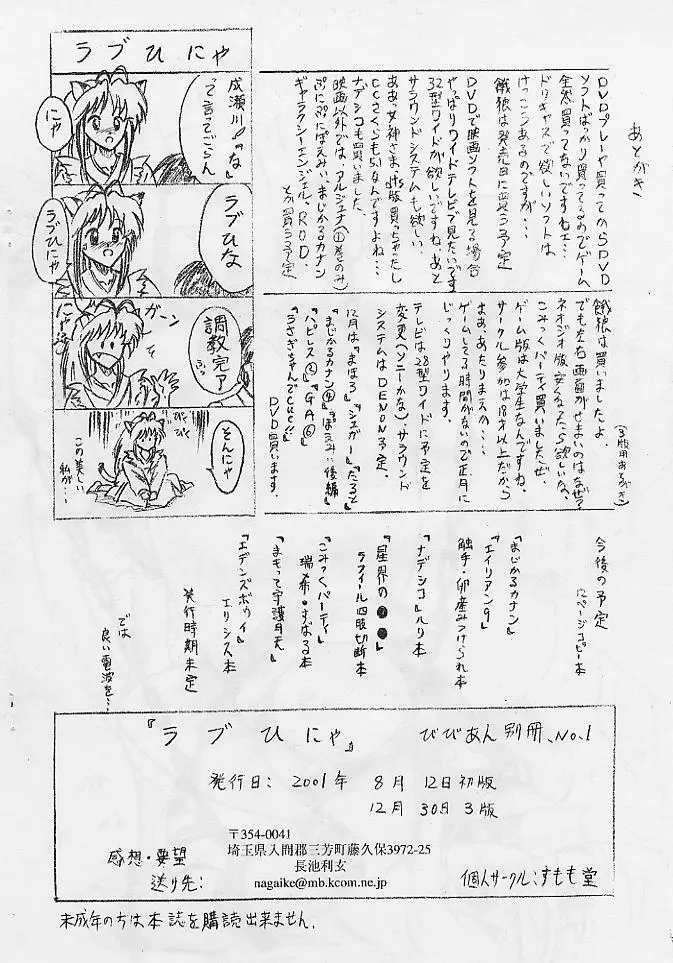 ラブひにゃ
成瀬川「な」
って言ってごらん
にゃ
ラブひな
ラブひにゃ
ガーン
調教完了
ふっ
にゃは
そんにゃ
びく
びく
この美しい
私が・・・
あとがき
DVDプレーヤ買ってからSDVD
ソフトばっかり買ってるのでゲーム
全然買ってないですねェ・・・
ドリキャスで欲しいソフトは
けっこうあるのですが・・・
餓狼は発売日に買う予定
DVDで映画ソフトを見る場合
やっぱりワイドテレビで見たいです
32型ワイドが欲しいですね。あと
サラウンドシステムも欲しい。
ああっ女神さまっdts版買っちゃったし
CCさくらも5.1なんですよね・・・
ナデシコも買いました。
映画以外では、アルジュナ(①巻のみ)
ぷにぷにぽえみぃ、まじかるカナン
ギャラクシーエンジェル、R.O.D.
とか買う予定
餓狼は買いましたよ。
(3版用あとがき)
でも左右画面がせまいのはなぜ?
ネオジオ版安くなったら欲しいな。
こみっくパーティ買いましたぜ。
ゲーム版は大学生なんですね。
サークル参加は18才以上だから
まぁ、あたりまえか・・・
ゲームしてる時間がないので正月に
じっくりやります。
テレビは28型ワイドに予定を
変更(ソニーかな)、サラウンド
システムはDENON予定。
12月は『まほろ』『ジェガー』『たると』
『まじかるカナン④』『ぽえみぃ後編』
『ハピレス②』『GA⑥』
『うさぎちゃんでCue!!』
DVD買います。
今後の予定
12ページコピー本
『まじかるカナン』
『エイリアン9』
触手・卵産みつけられ本
『ナデシコ』ルリ本
『星界の●●』
ラフィール四股切断本
『こみっくパーティ』
瑞希・すばる本
『まもって守護月天』
『エデンズボゥイ』
エリシス本
発行時期未定
では
良い電波を・・・
『ラブひにゃ』 びびあん別冊、No.1
発行日: 2001年 8月 12日初版
12月 30日 3版
〒354-0041
埼玉県入間郡三芳町藤久保3972-25
長池利玄
nagaike@mb.kcom.ne.jp
感想・要望
送り先:
個人サークル:すもも堂
未成年の方は本誌を購読出来ません.